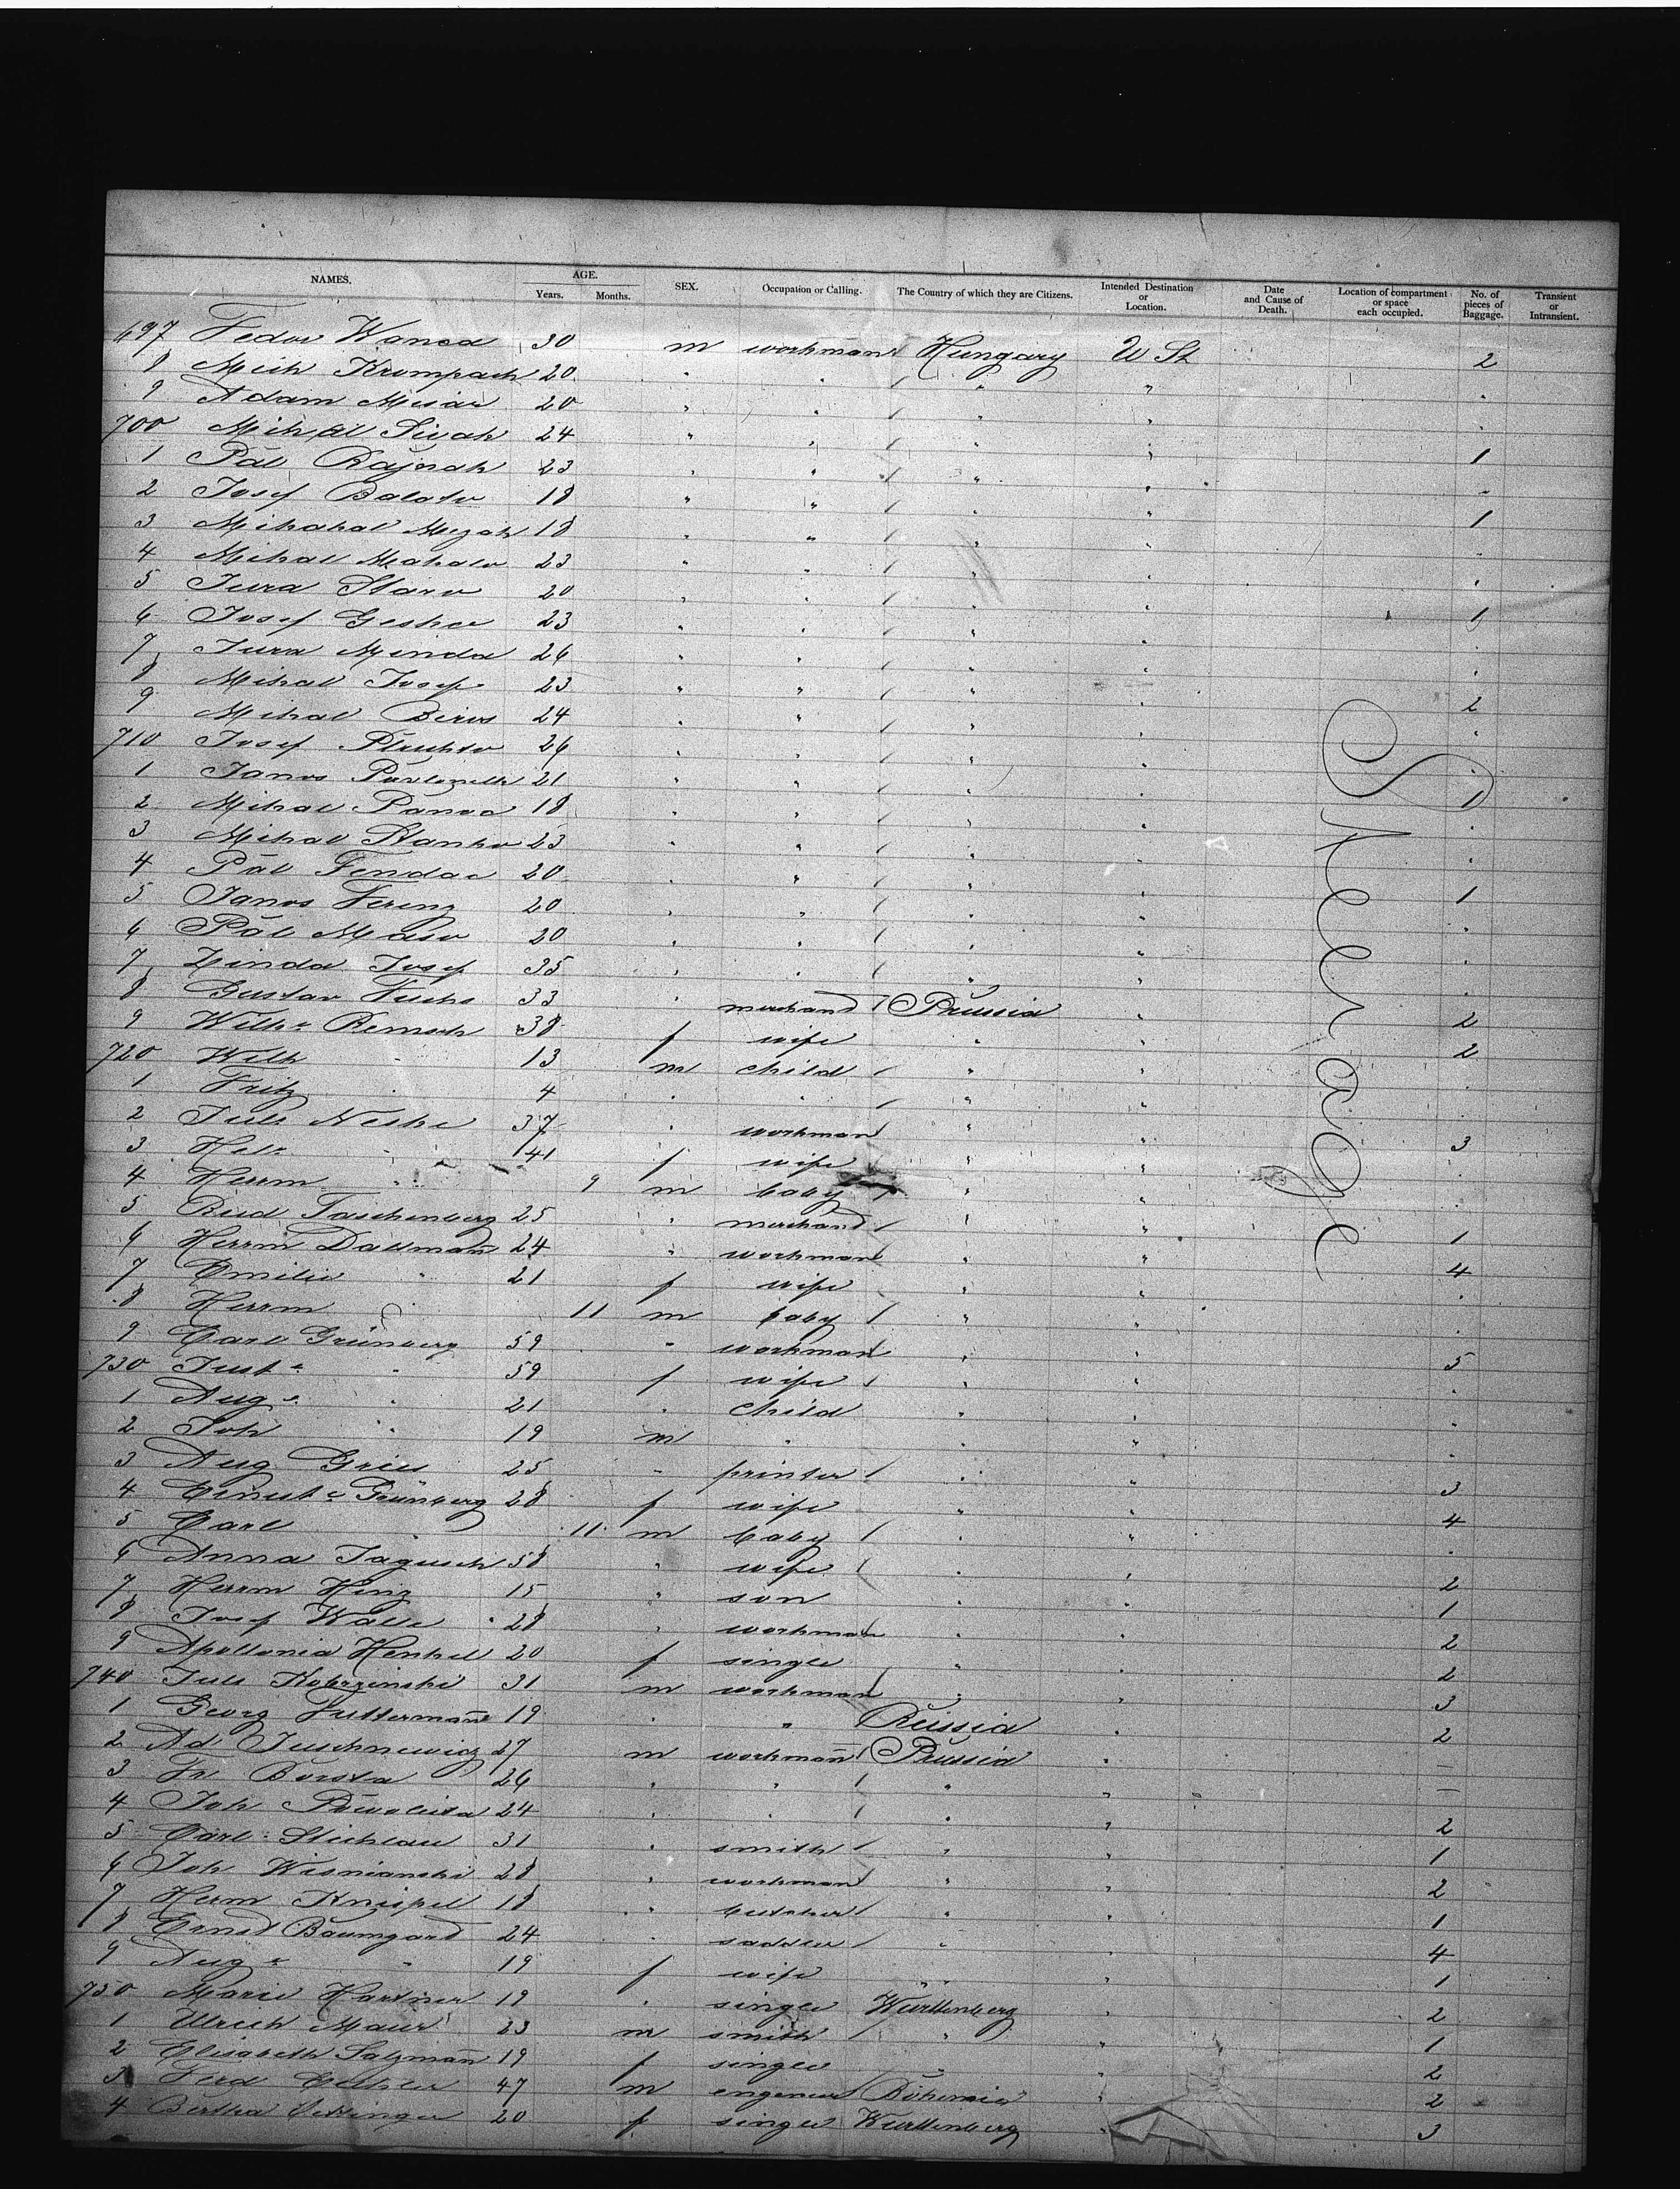 NAMES. AGE. Years. Months. SEX. Occupation or Calling. The Country of which they are Citizens. Intended Destination or Location. Date and Cause of Death. Location of compartment or space each occupied. No. of pieces of Baggage. Transient or Intransient.
697 Fedor Wanca 30 m workman Hungary U St 2
8 Mich Krompach 20 " " " " "
9 Adam Mesár 20 " " " " "
700 Mihál Sivak 24 " " " " 1
1 Pál Rajnak 23 " " " " "
2 Josef Balato 18 " " " " 1
3 Mihahal Mezak 18 " " " " "
4 Mihal Mahalo 23 " " " " "
5 Jura Staro 20 " " " " 1
6 Josef 23 " " " " "
7 Jura Minda 26 " " " " "
8 Mihal Josef 23 " " " " 2
9 Mihal Biros 24 " " " " "
710 Josef Pluchto 26 " " " " "
1 Janos 21 " " " " 1
2 Mihal Panac 18 " " " " "
3 Mihal Stanko 23 " " " " "
4 Pál Fendac 20 " " " " 1
5 Janos Ferenz 20 " " " " "
6 Pál Maso 20 " " " " "
7 Linda Josef 35 " " " " "
8 Gustav Fuchs 33 " merchand Prussia " 2
9 Wilhe Remsch 38 f wife " " 2
720 Wilh " 13 m child " " "
1 Fritz " 4 " " " "
2 Juls Neske 37 " workman " " 3
3 Hele " 41 f wife " " "
4 Herrm " 9 m baby " " "
5 Rud Taschenberg 25 " merchand " " 1
6 Herrm Dallmann 24 " workman " " 4
7 Emilie " 21 f wife " " "
8 Herrm " 11 m baby " " "
9 Carl Grünberg 59 " workman " " 5
730 Juste " 59 f wife " " "
1 Auge " 21 " child " " "
2 Joh " 19 m " " " "
3 Aug Gries 25 " printer " " 3
4 Ernste Grünberg 28 f wife " " 4
5 Carl " 11 m baby " " "
6 Anna Jagusch 58 " wife " " 2
7 Herrm Hinz 15 " son " " 1
8 Josef Walle 28 " workman " " 2
9 Apollonia Henkel 20 f single " " 2
740 Juls Kobrzinski 31 m workman " " 3
1 Georg Futtermann 19 " " Russia " 2
2 Ad Juschnewicz 27 m workman Prussia " –
3 Fr Borsta 26 " " " " –
4 Joh Powalista 24 " " " " 2
5 Carl Stichlau 31 " smith " " 1
6 Joh Wisnianski 28 " workman " " 2
7 Herm Kneipel 18 " butcher " " 1
8 Ernst Baumgard 24 " saddler " " 4
9 Auge " 19 f wife " " 1
750 Marie Hartner 19 " single Württenberg " 2
1 Ulrich Maier 23 m smith " " 1
2 Elisabeth Salzmann 19 f single " " 2
3 Ferd 47 m engeneur Böhemia " 2
4 Bertha Oettinger 20 f single Württenberg " 3
Steerage